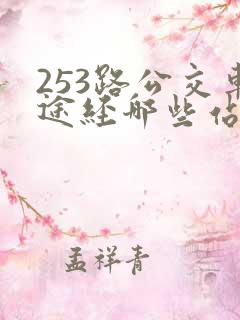 253路公交车
途经哪些站
孟祥青